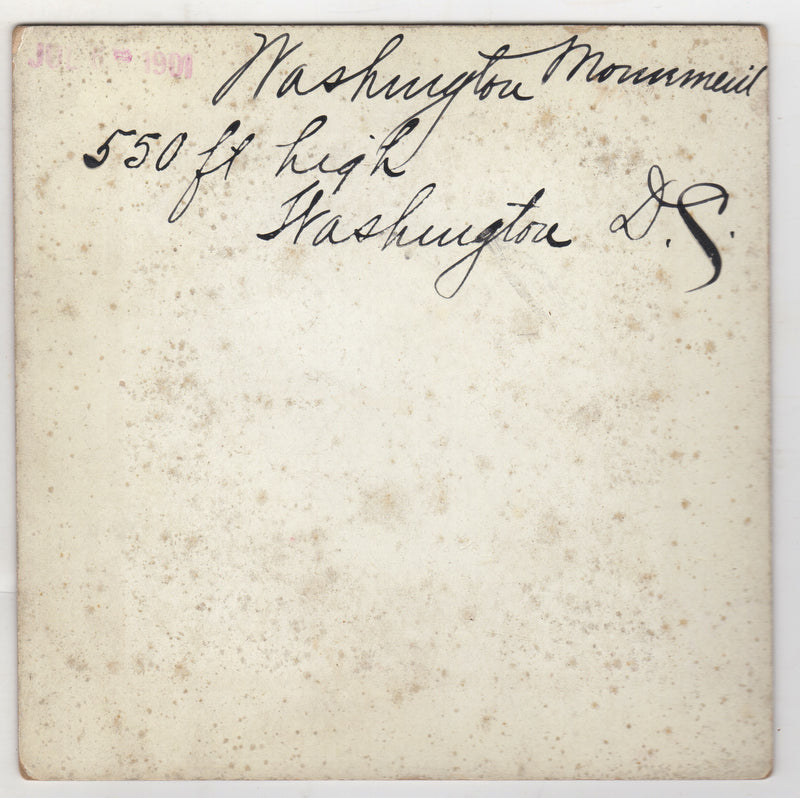 Washington Monument
550 ft high
Washington D.C.